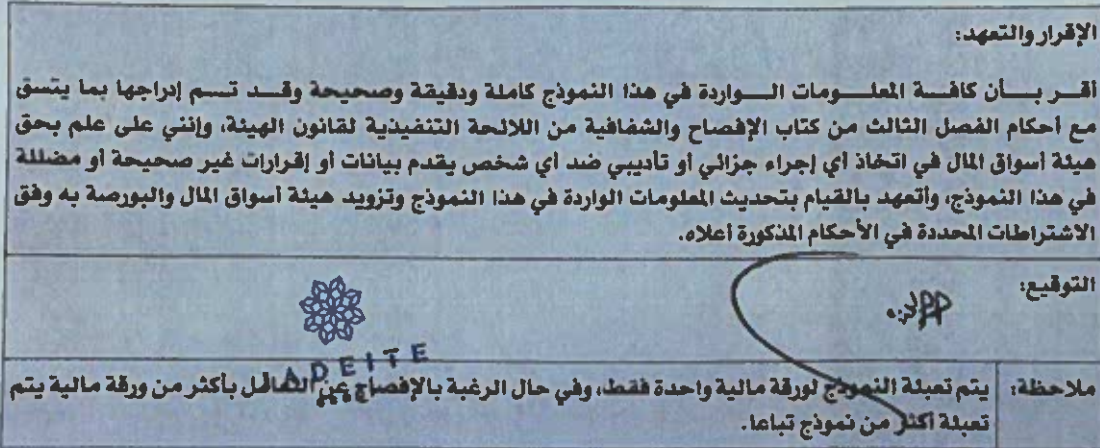 الإقرار والتعهد:
أقر بأن كافة المعلومات الواردة في هذا النموذج كاملة ودقيقة وصحيحة وقد تم إدراجها بما يتسق
مع أحكام الفصل الثالث من كتاب الإفصاح والشفافية من اللائحة التنفيذية لقانون الهيئة، وإنني على علم بحق
هيئة أسواق المال في اتخاذ أي إجراء جزائي أو تأديبي ضد أي شخص يقدم بيانات أو إقرارات غير صحيحة أو مضللة
في هذا النموذج، وأتعهد بالقيام بتحديث المعلومات الواردة في هذا النموذج وتزويد هيئة أسواق المال والبورصة به وفق
الاشتراطات المحددة في الأحكام المذكورة أعلاه.
التوقيع:
ADEITE
ملاحظة: يتم تعبئة النموذج لورقة مالية واحدة فقط، وفي حال الرغبة بالإفصاح عن التعامل بأكثر من ورقة مالية يتم
تعبئة أكثر من نموذج تباعا.